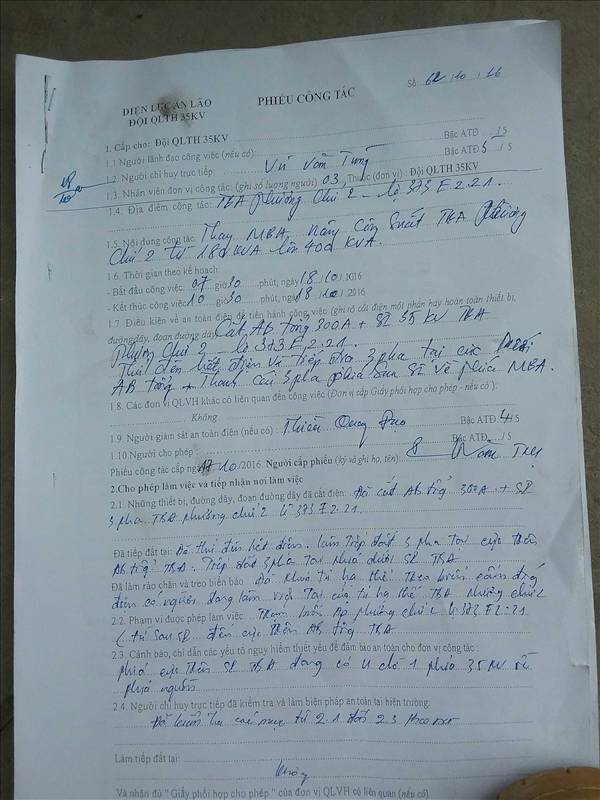 ĐIỆN LỰC AN LÃO
ĐỘI QLTH 35KV
PHIẾU CÔNG TÁC
Số 62 /10 / 16
1. Cấp cho: Đội QLTH 35KV
1.1 Người lãnh đạo công việc (nếu có): Bậc ATĐ /5
1.2. Người chỉ huy trực tiếp : Vũ Văn Tùng Bậc ATĐ 5 /5
1.3. Nhân viên đơn vị công tác: (ghi số lượng người) 03, Thuộc (đơn vị) : Đội QLTH 35KV
1.4. Địa điểm công tác: TBA Phương Chử 2 - lộ 373 E2.21.
1.5. Nội dung công tác: Thay MBA, nâng công suất TBA Phương
Chử 2 từ 180 KVA lên 400 KVA.
1.6. Thời gian theo kế hoạch:
- Bắt đầu công việc: 07 giờ 30 phút, ngày 18 /10 /2016
- Kết thúc công việc: 10 giờ 30 phút, ngày 18 /10 / 2016
1.7. Điều kiện về an toàn điện để tiến hành công việc (ghi rõ cắt điện một phần hay hoàn toàn thiết bị,
đường dây, đoạn đường dây) Cắt AB tổng 300A + SI 35 kV TBA
Phương Chử 2 - lộ 373 E2.21.
Thử đến hết điện và tiếp địa 3 pha tại cực dưới
AB tổng + Thanh cái 3 pha phía sau SI về phía MBA.
1.8. Các đơn vị QLVH khác có liên quan đến công việc (Đơn vị cấp Giấy phối hợp cho phép - nếu có ):
Không
1.9. Người giám sát an toàn điện (nếu có) : Quang Bậc ATĐ: 4 /5
1.10.Người cho phép : Bậc ATĐ / 5
Phiếu công tác cấp ngày 17 /10 /2016. Người cấp phiếu (ký và ghi họ, tên):
2.Cho phép làm việc và tiếp nhận nơi làm việc
2.1. Những thiết bị, đường dây, đoạn đường dây đã cắt điện: Đã cắt AB tổng 300A + SI
3 pha TBA Phương Chử 2 lộ 373 E2.21.
Đã tiếp đất tại: Đã thử đến hết điện. làm tiếp đất 3 pha tại cực trên
AB tổng TBA. Tiếp đất 3 pha tại phía dưới SI TBA
Đã làm rào chắn và treo biển báo : Đã khóa tủ hạ thế. Treo biển cấm đóng
điện có người đang làm việc tại cửa tủ hạ thế TBA Phương Chử 2
2.2. Phạm vi được phép làm việc: Trạm biến áp Phương Chử 2 lộ 373 E2.21
( từ sau SI đến cực trên AB tổng TBA
2.3. Cảnh báo, chỉ dẫn các yếu tố nguy hiểm thiết yếu để đảm bảo an toàn cho đơn vị công tác :
phía cực trên SI TBA đang có U chờ 1 phía 35 KV về
phía nguồn
2.4. Người chỉ huy trực tiếp đã kiểm tra và làm biện pháp an toàn tại hiện trường:
Đã kiểm tra các mục từ 2.1 đến 2.3
Làm tiếp đất tại:
Không
Và nhận đủ " Giấy phối hợp cho phép " của đơn vị QLVH có liên quan (nếu có)